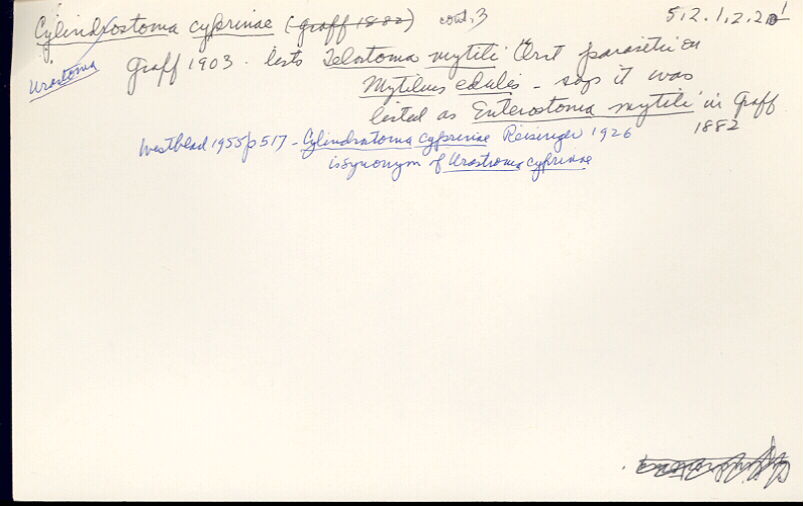 Cylindrostoma cyprinae (Graff 1882) cont. 3 5.2.1.2.2.
Urastoma
Graff 1903 - lists Telostoma mytili Örst parasitic on
Mytilus edulis - says it was
listed as Enterostoma mytili in Graff
1882
Westblad 1955 p 517 - Cylindrostoma cyprinae Reisinger 1926
is synonym of Urastoma cyprinae